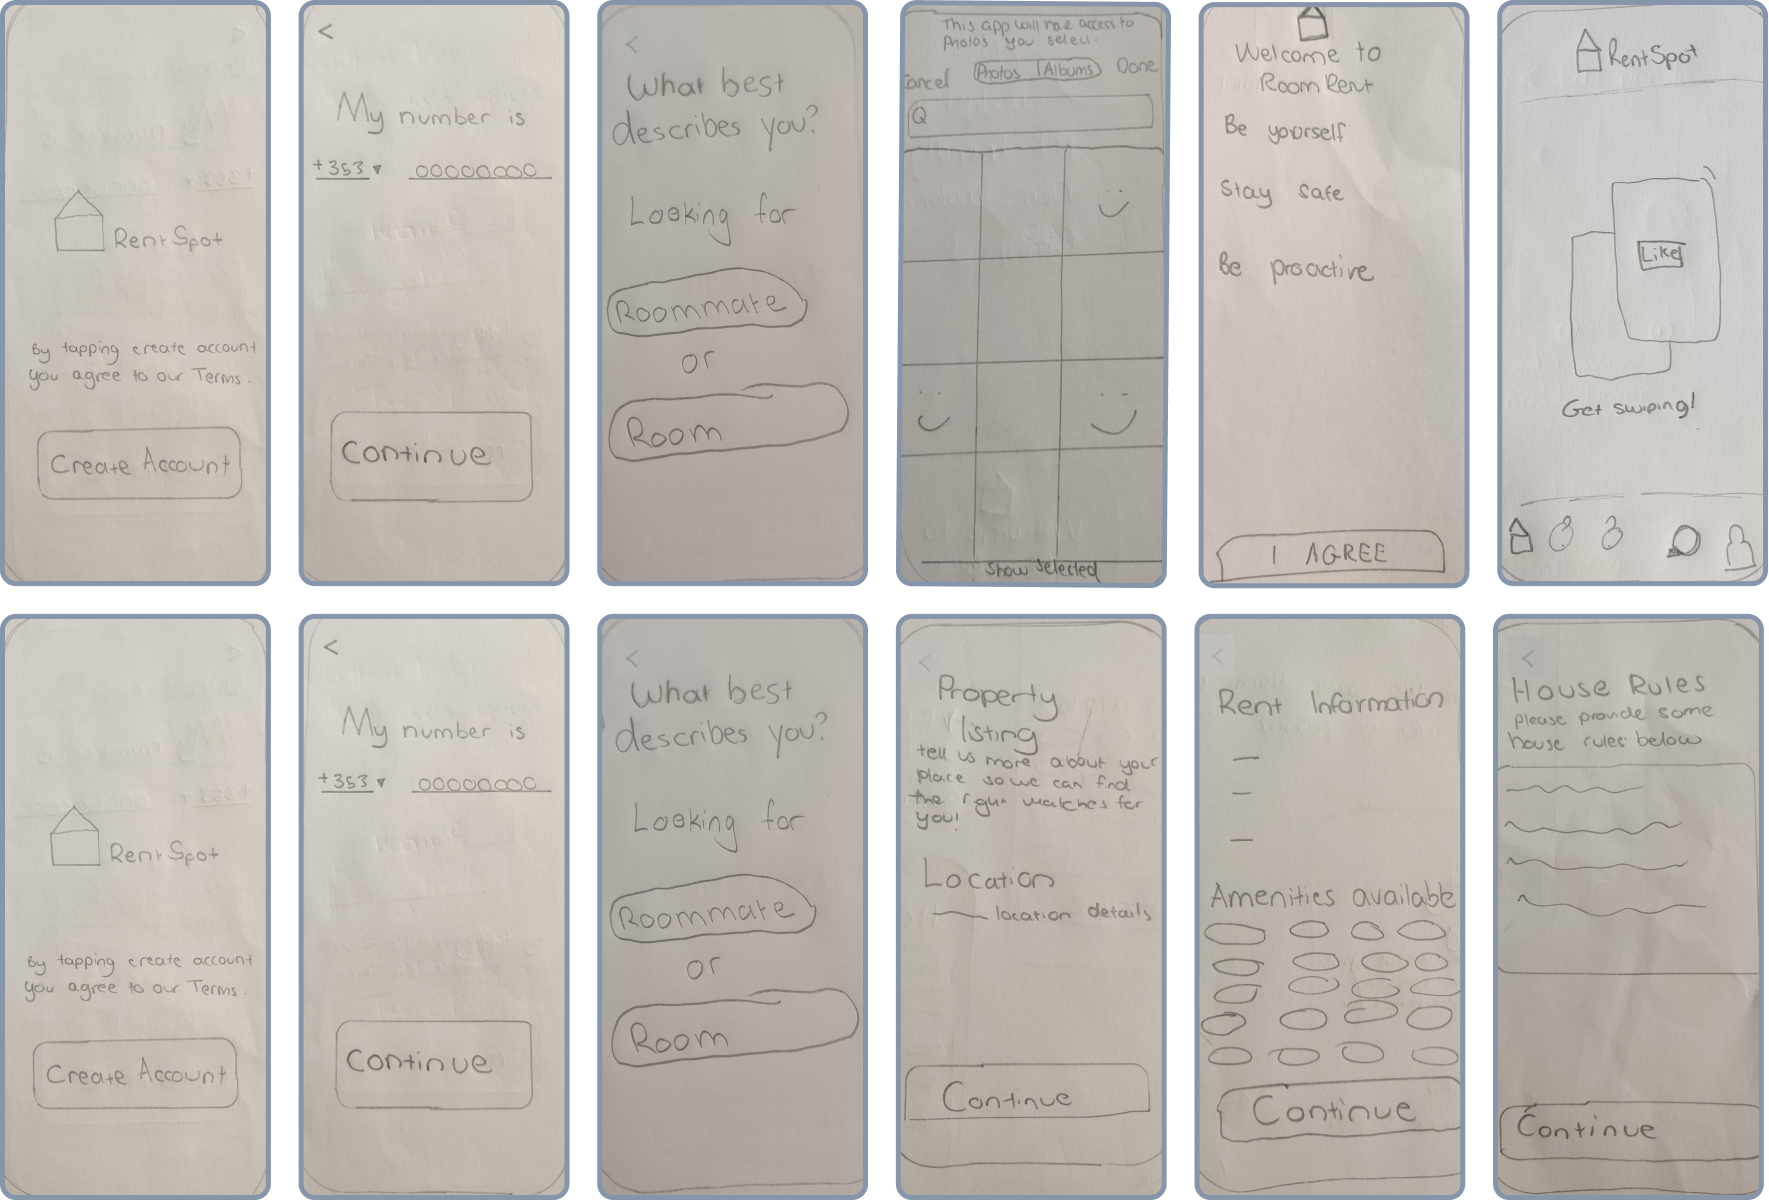 RentSpot
By tapping create account
you agree to our Terms.
Create Account
<
My number is
+353 ▾ 00000000
Continue
<
What best
describes you?
Looking for
Roommate
or
Room
This app will have access to
Photos you select.
Cancel Photos | Albums Done
Q
Show selected
Welcome to
Room Rent
Be yourself
Stay safe
Be proactive
I AGREE
RentSpot
Like
Get swiping!
RentSpot
By tapping create account
you agree to our Terms.
Create Account
<
My number is
+353 ▾ 00000000
Continue
<
What best
describes you?
Looking for
Roommate
or
Room
<
Property
listing
tell us more about your
place so we can find
the right matches for
you!
Location
location details
Continue
<
Rent Information
Amenities available
Continue
<
House Rules
please provide some
house rules below
Continue